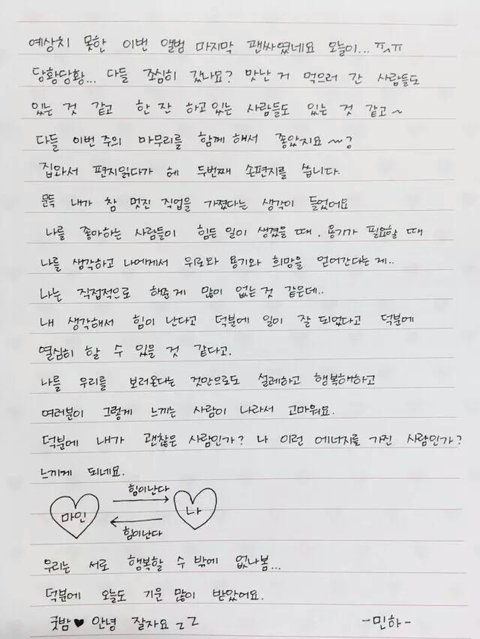 예상치 못한 이번 앨범 마지막 팬싸였네요 오늘이... ㅠㅅㅠ
당황당황... 다들 조심히 갔나요? 맛난 거 먹으러 간 사람들도
있는 것 같고 한 잔 하고 있는 사람들도 있는 것 같고~
다들 이번 주의 마무리를 함께 해서 좋았지요 ~?
집와서 편지읽다가 헤 두번째 손편지를 씁니다.
문득 내가 참 멋진 직업을 가졌다는 생각이 들었어요
나를 좋아하는 사람들이 힘든 일이 생겼을 때. 용기가 필요할 때
나를 생각하고 나에게서 위로와 용기와 희망을 얻어간다는게..
나는 직접적으로 해준게 많이 없는것 같은데..
내 생각해서 힘이 난다고 덕분에 일이 잘 되었다고 덕분에
열심히 할 수 있을 것 같다고.
나를 우리를 보러온다는 것만으로도 설레하고 행복해하고
여러분이 그렇게 느끼는 사람이 나라서 고마워요.
덕분에 내가 괜찮은 사람인가? 나 이런 에너지를 가진 사람인가?
느끼게 되네요.
힘이난다
마인 나
힘이난다
우리는 서로 행복할 수 밖에 없나봄...
덕분에 오늘도 기운 많이 받았어요.
굿밤♥ 안녕 잘자요 zz
-민하-